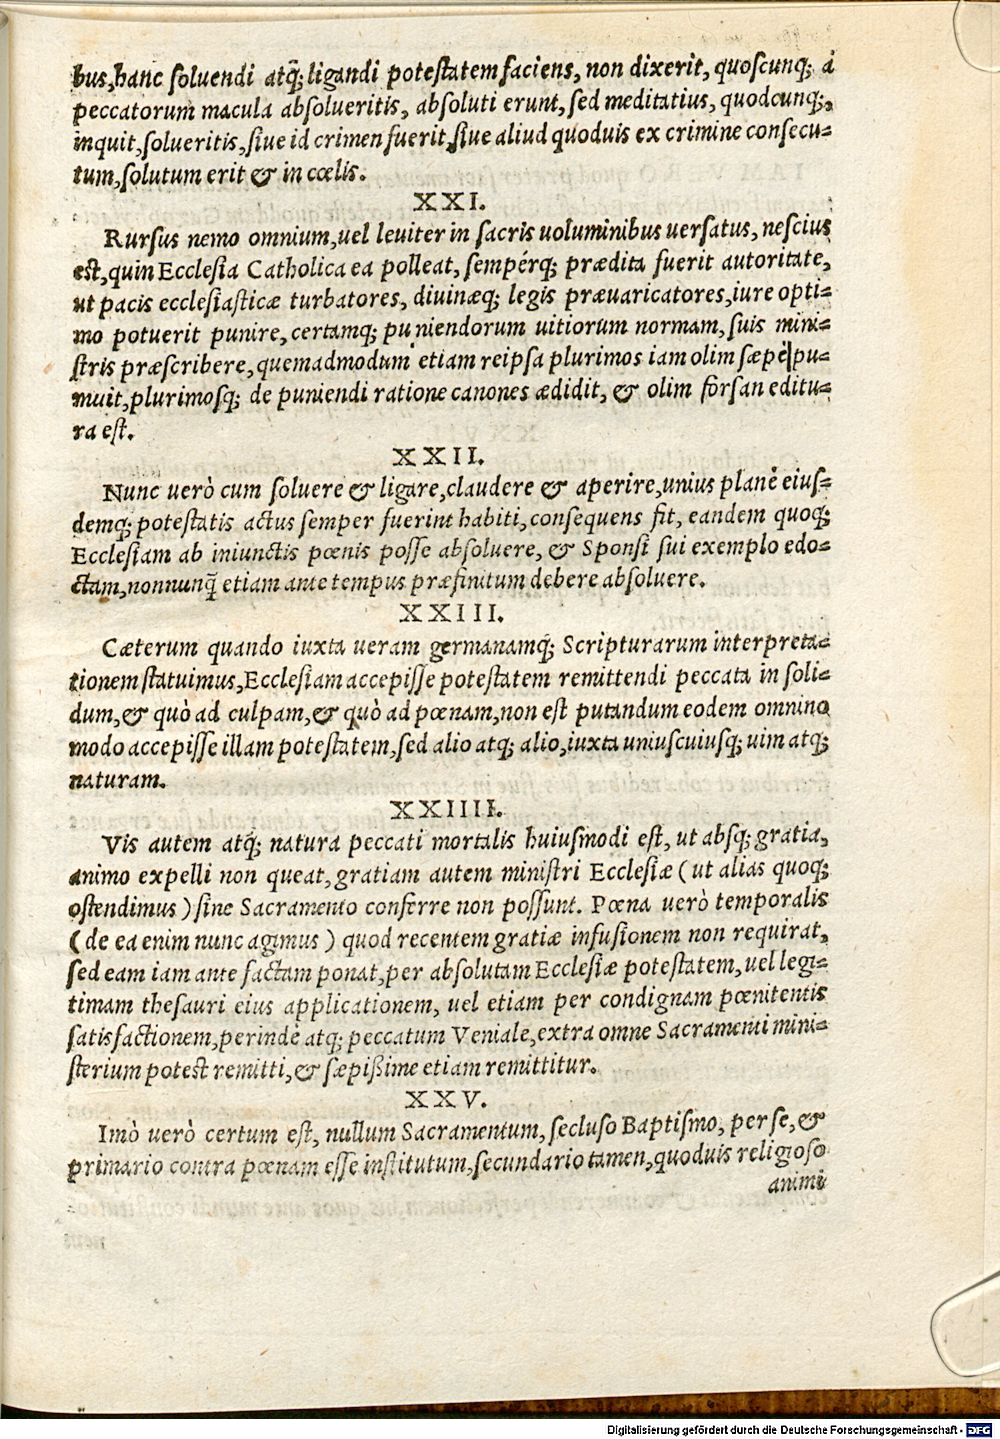 bus, hanc soluendi atq̃; ligandi potestatem faciens, non dixerit, quoscunq; à
peccatorum macula absolueritis, absoluti erunt, sed meditatius, quodcunq;,
inquit, solueritis, siue id crimen fuerit, siue aliud quoduis ex crimine consecu-
tum, solutum erit & in cœlis.
XXI.
Rursus nemo omnium, uel leuiter in sacris uoluminibus uersatus, nescius
est, quin Ecclesia Catholica ea polleat, sempérq; prædita fuerit autoritate,
ut pacis ecclesiasticæ turbatores, diuinæq; legis præuaricatores, iure opti-
mo potuerit punire, certamq; puniendorum uitiorum normam, suis mini-
stris præscribere, quemadmodum etiam reipsa plurimos iam olim sæpè pu-
nuit, plurimosq; de puniendi ratione canones ædidit, & olim forsan editu-
ra est.
XXII.
Nunc uerò cum soluere & ligare, claudere & aperire, unius planè eius-
demq; potestatis actus semper fuerint habiti, consequens fit, eandem quoq;
Ecclesiam ab iniunctis pœnis posse absoluere, & Sponsi sui exemplo edo-
ctam, nonnunq̃ etiam ante tempus præfinitum debere absoluere.
XXIII.
Cæterum quando iuxta ueram germanamq; Scripturarum interpreta-
tionem statuimus, Ecclesiam accepisse potestatem remittendi peccata in soli-
dum, & quò ad culpam, & quò ad pœnam, non est putandum eodem omnino
modo accepisse illam potestatem, sed alio atq; alio, iuxta uniuscuiusq; uim atq;
naturam.
XXIIII.
Vis autem atq́; natura peccati mortalis huiusmodi est, ut absq; gratia,
animo expelli non queat, gratiam autem ministri Ecclesiæ ( ut alias quoq;
ostendimus ) sine Sacramento conferre non possunt. Pœna uerò temporalis
( de ea enim nunc agimus ) quod recentem gratiæ infusionem non requirat,
sed eam iam ante factam ponat, per absolutam Ecclesiæ potestatem, uel legi-
timam thesauri eius applicationem, uel etiam per condignam pœnitentis
satisfactionem, perindè atq; peccatum Veniale, extra omne Sacramenti mini-
sterium potest remitti, & sæpißime etiam remittitur.
XXV.
Imò uerò certum est, nullum Sacramentum, secluso Baptismo, per se, &
primario contra pœnam esse institutum, secundario tamen, quoduis religioso
animi
Digitalisierung gefördert durch die Deutsche Forschungsgemeinschaft - DFG